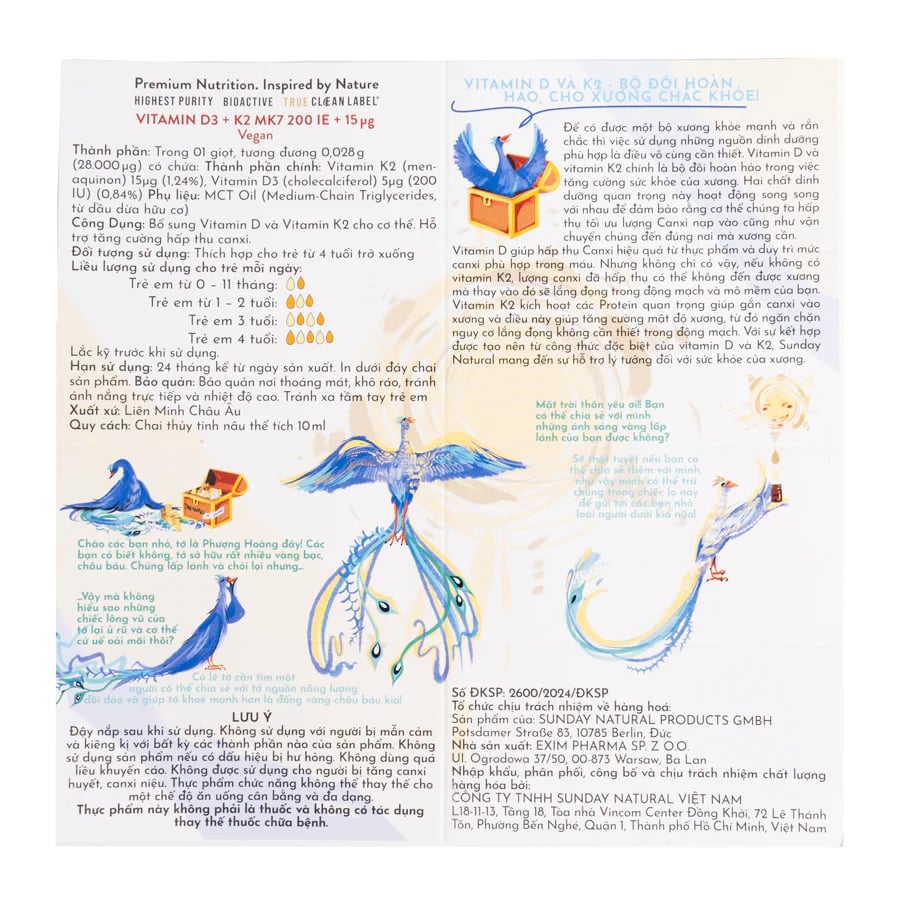 Premium Nutrition. Inspired by Nature
HIGHEST PURITY BIOACTIVE TRUE CLEAN LABEL®
VITAMIN D3 + K2 MK7 200 IE + 15 µg
Vegan
Thành phần: Trong 01 giọt, tương đương 0,028g
(28.000µg) có chứa: Thành phần chính: Vitamin K2 (men-
aquinon) 15µg (1,24%), Vitamin D3 (cholecalciferol) 5µg (200
IU) (0,84%) Phụ liệu: MCT Oil (Medium-Chain Triglycerides,
từ dầu dừa hữu cơ)
Công Dụng: Bổ sung Vitamin D và Vitamin K2 cho cơ thể. Hỗ
trợ tăng cường hấp thu canxi.
Đối tượng sử dụng: Thích hợp cho trẻ từ 4 tuổi trở xuống
Liều lượng sử dụng cho trẻ mỗi ngày:
Trẻ em từ 0 – 11 tháng:
Trẻ em từ 1 – 2 tuổi:
Trẻ em 3 tuổi:
Trẻ em 4 tuổi:
Lắc kỹ trước khi sử dụng.
Hạn sử dụng: 24 tháng kể từ ngày sản xuất. In dưới đáy chai
sản phẩm. Bảo quản: Bảo quản nơi thoáng mát, khô ráo, tránh
ánh nắng trực tiếp và nhiệt độ cao. Tránh xa tầm tay trẻ em
Xuất xứ: Liên Minh Châu Âu
Quy cách: Chai thủy tinh nâu thể tích 10ml
Chào các bạn nhỏ, tớ là Phượng Hoàng đây! Các
bạn có biết không, tớ sở hữu rất nhiều vàng bạc,
châu báu. Chúng lấp lánh và chói lọi nhưng...
..Vậy mà không
hiểu sao những
chiếc lông vũ của
tớ lại ủ rũ và cơ thể
cứ uể oải mãi thôi?
Có lẽ tớ cần tìm một
người có thể chia sẻ với tớ nguồn năng lượng
dồi dào và giúp tớ khoẻ mạnh hơn là đống vàng châu báu kia!
LƯU Ý
Đậy nắp sau khi sử dụng. Không sử dụng với người bị mẫn cảm
và kiêng kị với bất kỳ các thành phần nào của sản phẩm. Không
sử dụng sản phẩm nếu có dấu hiệu bị hư hỏng. Không dùng quá
liều khuyến cáo. Không được sử dụng cho người bị tăng canxi
huyết, canxi niệu. Thực phẩm chức năng không thể thay thế cho
một chế độ ăn uống cân bằng và đa dạng.
Thực phẩm này không phải là thuốc và không có tác dụng
thay thế thuốc chữa bệnh.
VITAMIN D VÀ K2 - BỘ ĐÔI HOÀN
HẢO, CHO XƯƠNG CHẮC KHỎE!
Để có được một bộ xương khỏe mạnh và rắn
chắc thì việc sử dụng những nguồn dinh dưỡng
phù hợp là điều vô cùng cần thiết. Vitamin D và
vitamin K2 chính là bộ đôi hoàn hảo trong việc
tăng cường sức khỏe của xương. Hai chất dinh
dưỡng quan trọng này hoạt động song song
với nhau để đảm bảo rằng cơ thể chúng ta hấp
thụ tối ưu lượng Canxi nạp vào cũng như vận
chuyển chúng đến đúng nơi mà xương cần.
Vitamin D giúp hấp thu Canxi hiệu quả từ thực phẩm và duy trì mức
canxi phù hợp trong máu. Nhưng không chỉ có vậy, nếu không có
vitamin K2, lượng canxi đã hấp thu có thể không đến được xương
mà thay vào đó sẽ lắng đọng trong động mạch và mô mềm của bạn.
Vitamin K2 kích hoạt các Protein quan trọng giúp gắn canxi vào
xương và điều này giúp tăng cường mật độ xương, từ đó ngăn chặn
nguy cơ lắng đọng không cần thiết trong động mạch. Với sự kết hợp
được tạo nên từ công thức đặc biệt của vitamin D và K2, Sunday
Natural mang đến sự hỗ trợ lý tưởng đối với sức khỏe của xương.
Mặt trời thân yêu ơi!! Bạn
có thể chia sẻ với mình
những ánh sáng vàng lấp
lánh của bạn được không?
Sẽ thật tuyệt nếu bạn có
thể chia sẻ thêm với mình,
như vậy mình có thể trữ
chúng trong chiếc lọ này
để gửi tới các bạn nhỏ
loài người dưới kia nữa!
Số ĐKSP: 2600/2024/ĐKSP
Tổ chức chịu trách nhiệm về hàng hoá:
Sản phẩm của: SUNDAY NATURAL PRODUCTS GMBH
Potsdamer Straße 83, 10785 Berlin, Đức
Nhà sản xuất: EXIM PHARMA SP. Z O.O.
Ul. Ogrodowa 37/50, 00-873 Warsaw, Ba Lan
Nhập khẩu, phân phối, công bố và chịu trách nhiệm chất lượng
hàng hóa bởi:
CÔNG TY TNHH SUNDAY NATURAL VIỆT NAM
L18-11-13, Tầng 18, Tòa nhà Vincom Center Đồng Khởi, 72 Lê Thánh
Tôn, Phường Bến Nghé, Quận 1, Thành phố Hồ Chí Minh, Việt Nam